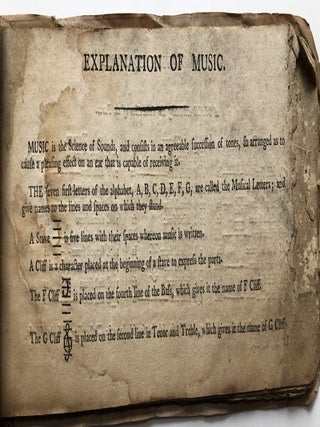 EXPLANATION OF MUSIC.
MUSIC is the Science of Sounds, and consists in an agreeable succession of tones, so arranged as to
cause a pleasing effect on an ear that is capable of receiving it.
THE seven first letters of the alphabet, A, B, C, D, E, F, G, are called the Musical Letters; and
give names to the lines and spaces on which they stand.
A Stave is five lines with their spaces whereon music is written.
A Cliff is a character placed at the beginning of a stave to express the parts.
The F Cliff is placed on the fourth line of the Bass, which gives it the name of F Cliff.
The G Cliff is placed on the second line in Tenor and Treble, which gives it the name of G Cliff.